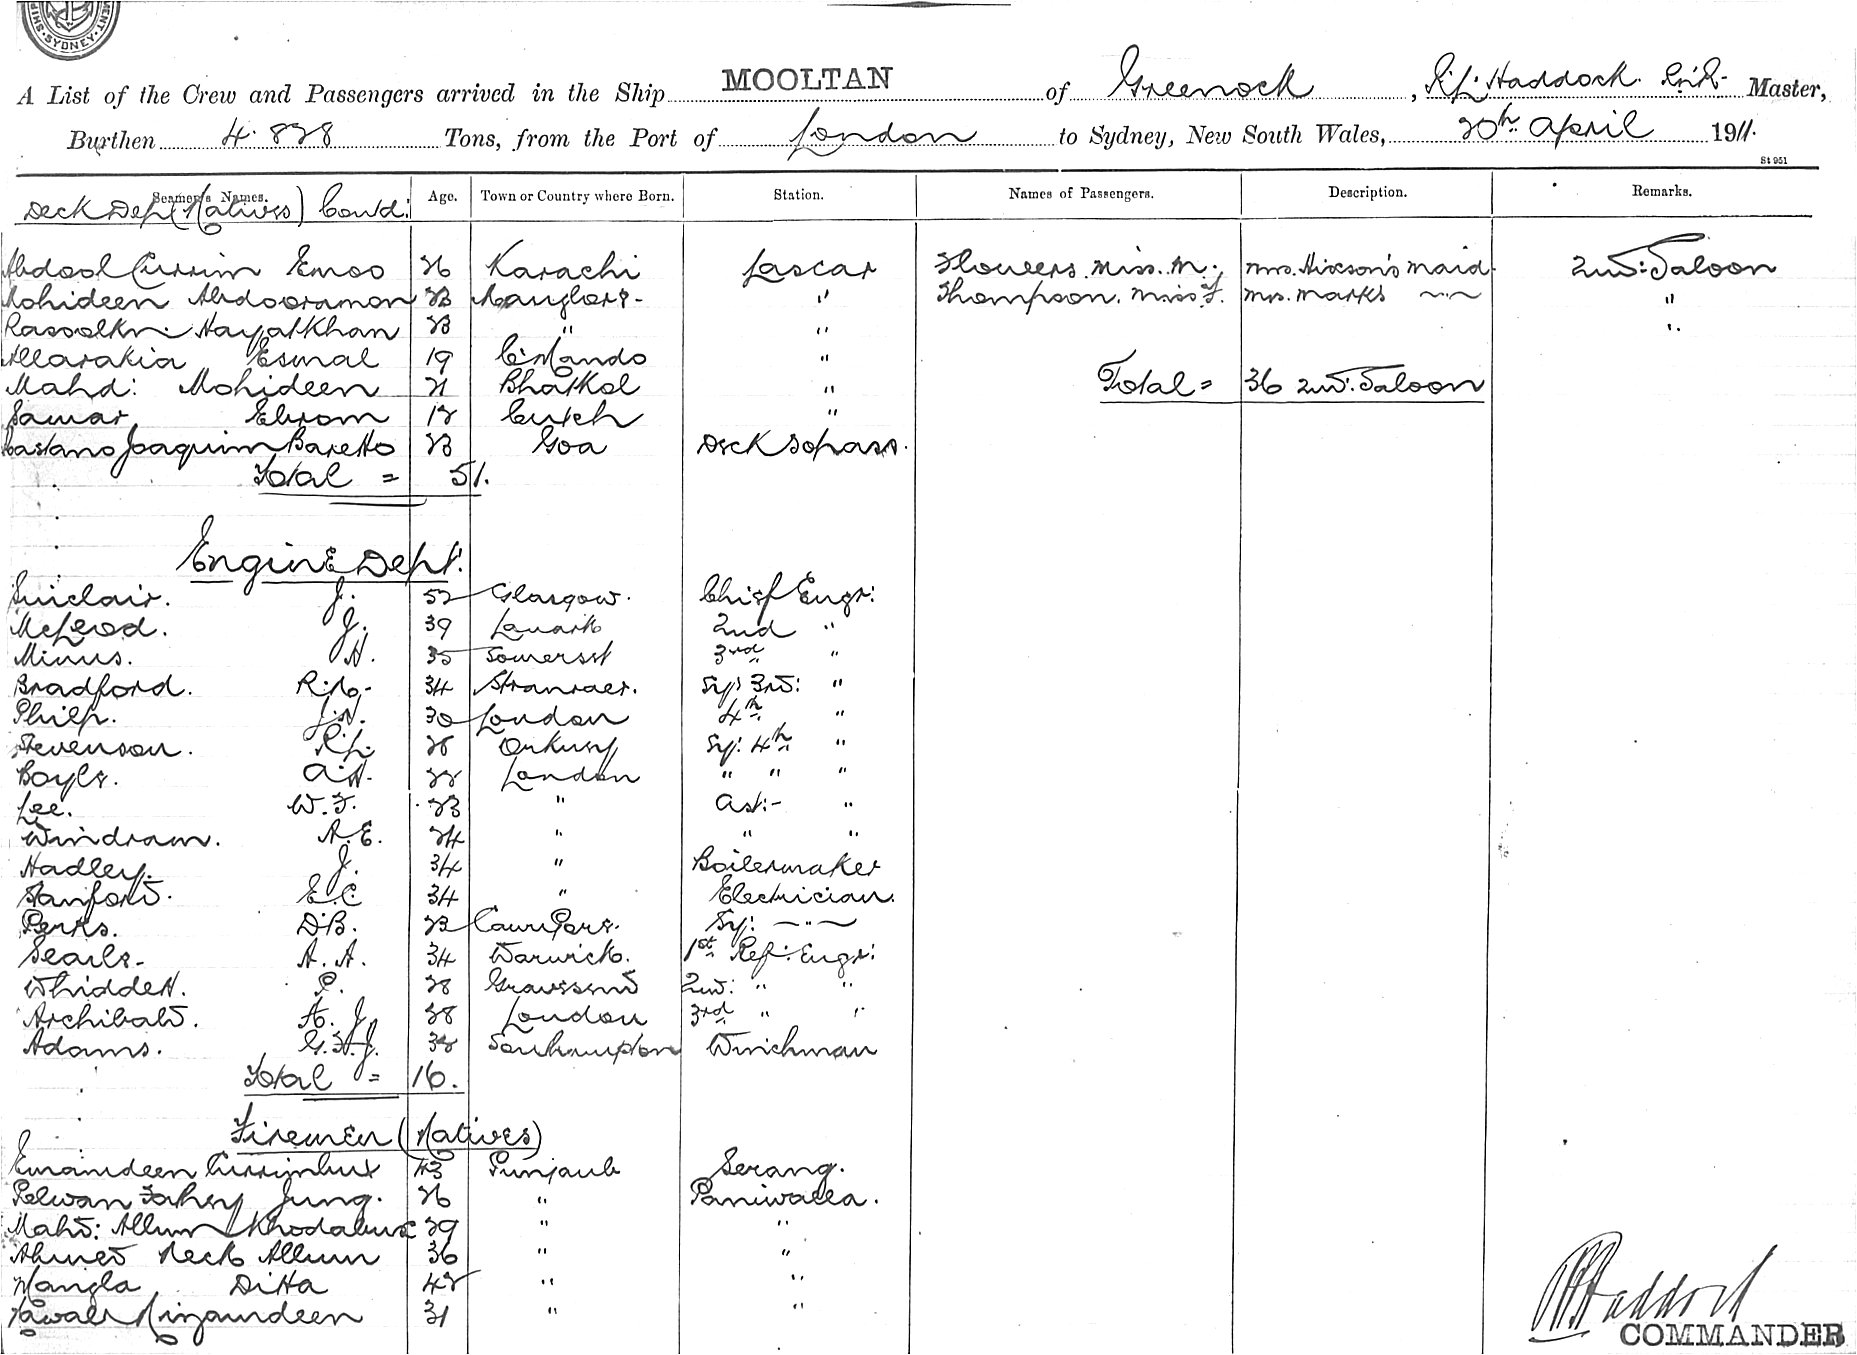 MENT SHIP SYDNEY
A List of the Crew and Passengers arrived in the Ship MOOLTAN of Greenock, R.L. Haddock R.N.R. Master,
Burthen 4.828 Tons, from the Port of London to Sydney, New South Wales, 20th April 1911.
St 951
Seamen's Names. Age. Town or Country where Born. Station. Names of Passengers. Description. Remarks.
Deck Dep (Natives) Contd:
Abdool Currim Emoo 26 Karachi Lascar Flowers. Miss. M. Mrs. Hixson's Maid. 2nd: Saloon
Mohideen Abdooramon 23 Manglore- " Thompson. Miss F. Mrs. Marks —"— "
Rasoolkn: Hayatkhan 23 " " "
Allarakia Esmal 19 "
Mahd: Mohideen 21 Bhatkol " Total = 36 2nd: Saloon
Samar Ebrom 18 Cutch "
Caetano Joaquim Baretto 23 Goa Deck Topass.
Total = 51.
Engine Dept.
Sinclair. J. 52 Glasgow. Chief Engr:
McLeod. J. 39 Lanark 2nd "
Minns. H. 35 Somerset 3rd "
Bradford. 34 Stranraer. Sy: 3rd: "
Philp. J.N. 30 London 4th "
Stevenson. R.L. 28 Orkney Sy: 4th "
Boyle. A.H. 22 London " " "
Lee. W.F. 23 " Ast:- "
Windram. A.E. 24 " " "
Hadley. J. 34 " Boilermaker
Stanford. E.C. 34 " Electrician.
Perks. D.B. 23 Cawnpore. Sy: —"—
Searle- A.A. 34 Warwick. 1st Ref: Engr:
Whiddett. P. 28 Gravesend 2nd: " "
Archibald. A. J. 28 London 3rd " "
Adams. G.H.J. 38 Southampton Winchman
Total = 16.
Firemen (Natives)
Emamdeen Currimbux 43 Punjaub Serang.
Pelwan Jung. 26 " Paniwalla.
Mahd: Allum Khodabux 29 " "
Ahmed Neck Allum 36 " "
Mangla Ditta 42 " "
Nawab Nizamdeen 31 " "
R L Haddock
COMMANDER